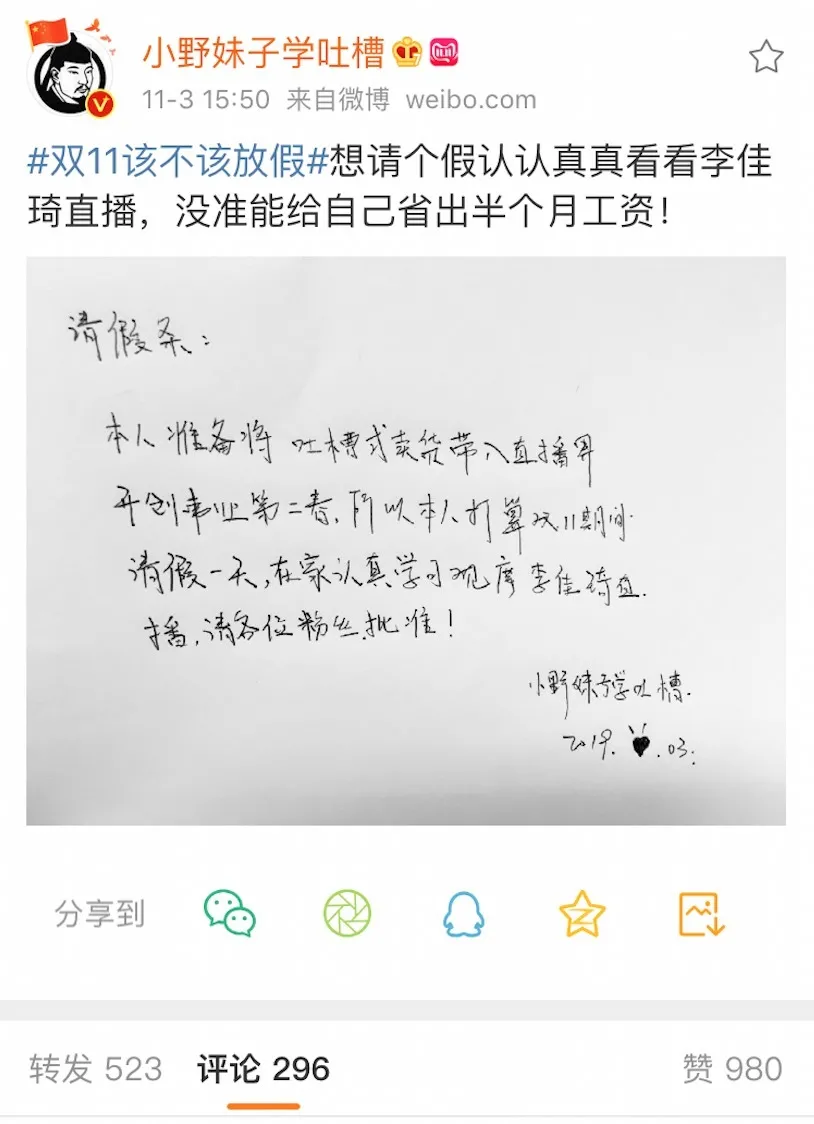 小野妹子学吐槽
11-3 15:50 来自微博 weibo.com
#双11该不该放假#想请个假认认真真看看李佳
琦直播，没准能给自己省出半个月工资！
请假条：
本人准备将吐槽式卖货带入直播界
开创事业第二春，所以本人打算双11期间
请假一天，在家认真学习观摩李佳琦直
播，请各位粉丝批准！
小野妹子学吐槽.
2019. .03.
分享到
转发 523 评论 296 赞 980